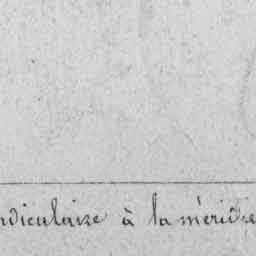 ndiculaire à la méridie